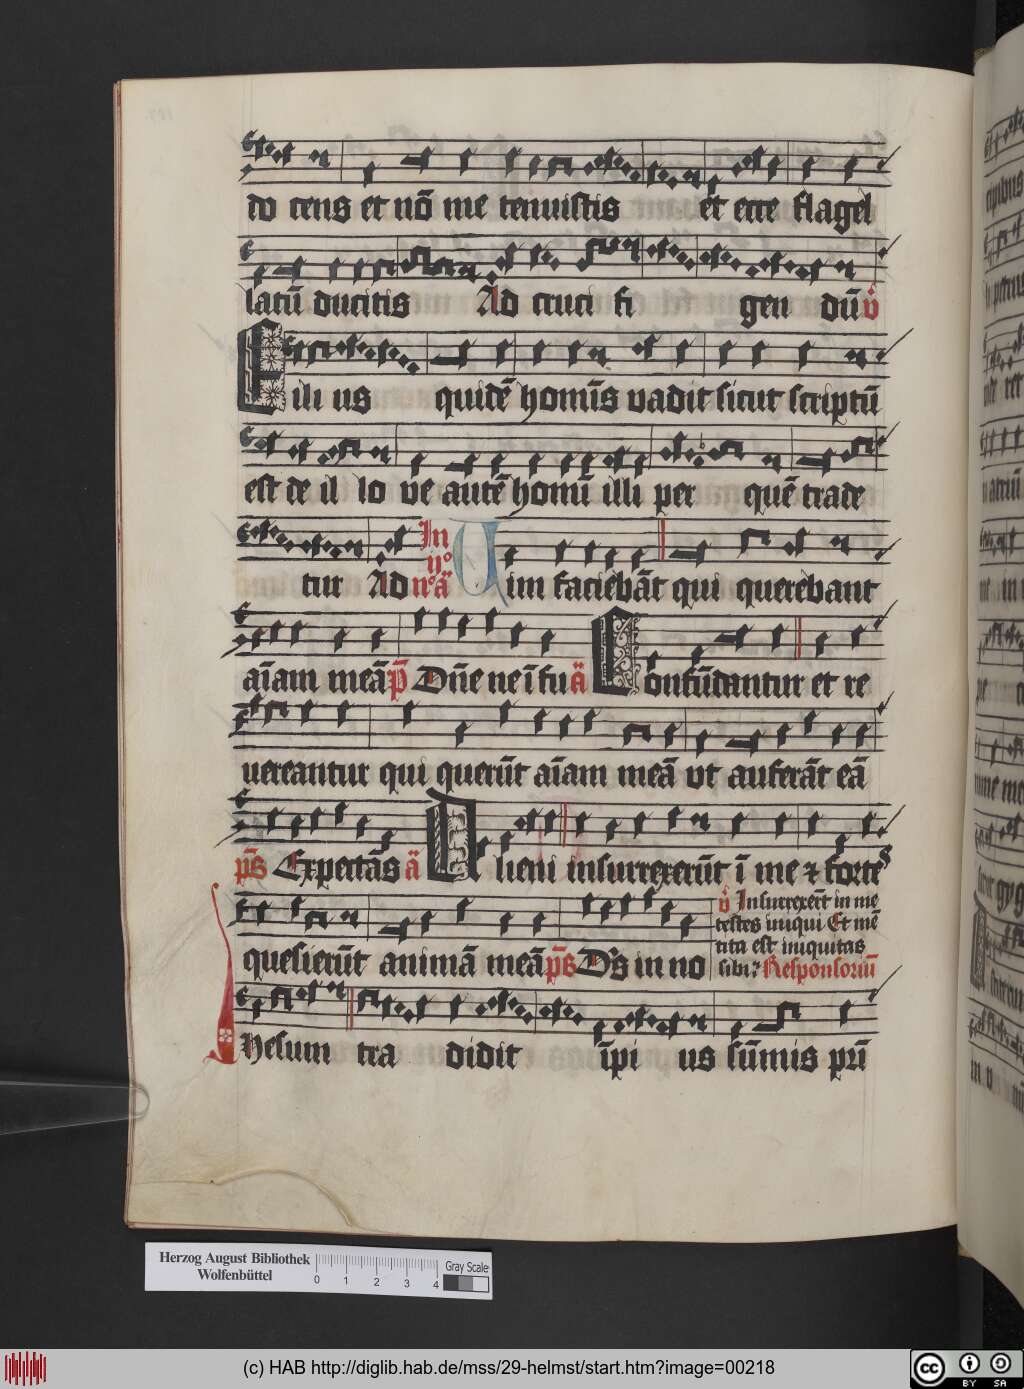 do cens et nō me tenuistis et ecce flagel
latū ducitis Ad cruci fi gen dū v̊
Fili us quidē homīs vadit sicut scriptū
est de il lo ve autē homī illi per quē trade
tur Ad
In
ij°
n°ā
Vim faciebāt qui querebant
aīam meā p̄ Dn̄e ne ī fu ā Confūdantur et re
uereantur qui querūt aīam meā ut auferāt eā
p̄s Expectās ā Alieni insurrexerūt ī me ⁊ fortes
quesierūt animā meā p̄s Ds̄ in no
v̊ Insurrexer̄t in me
testes iniqui Et mē
tita est iniquitas
sibi⁊ Responsoriū
Ihesum tra didit īpi us sūmis prī
Herzog August Bibliothek
Wolfenbüttel
0 1 2 3 4
Gray Scale
(c) HAB http://diglib.hab.de/mss/29-helmst/start.htm?image=00218
cc BY SA